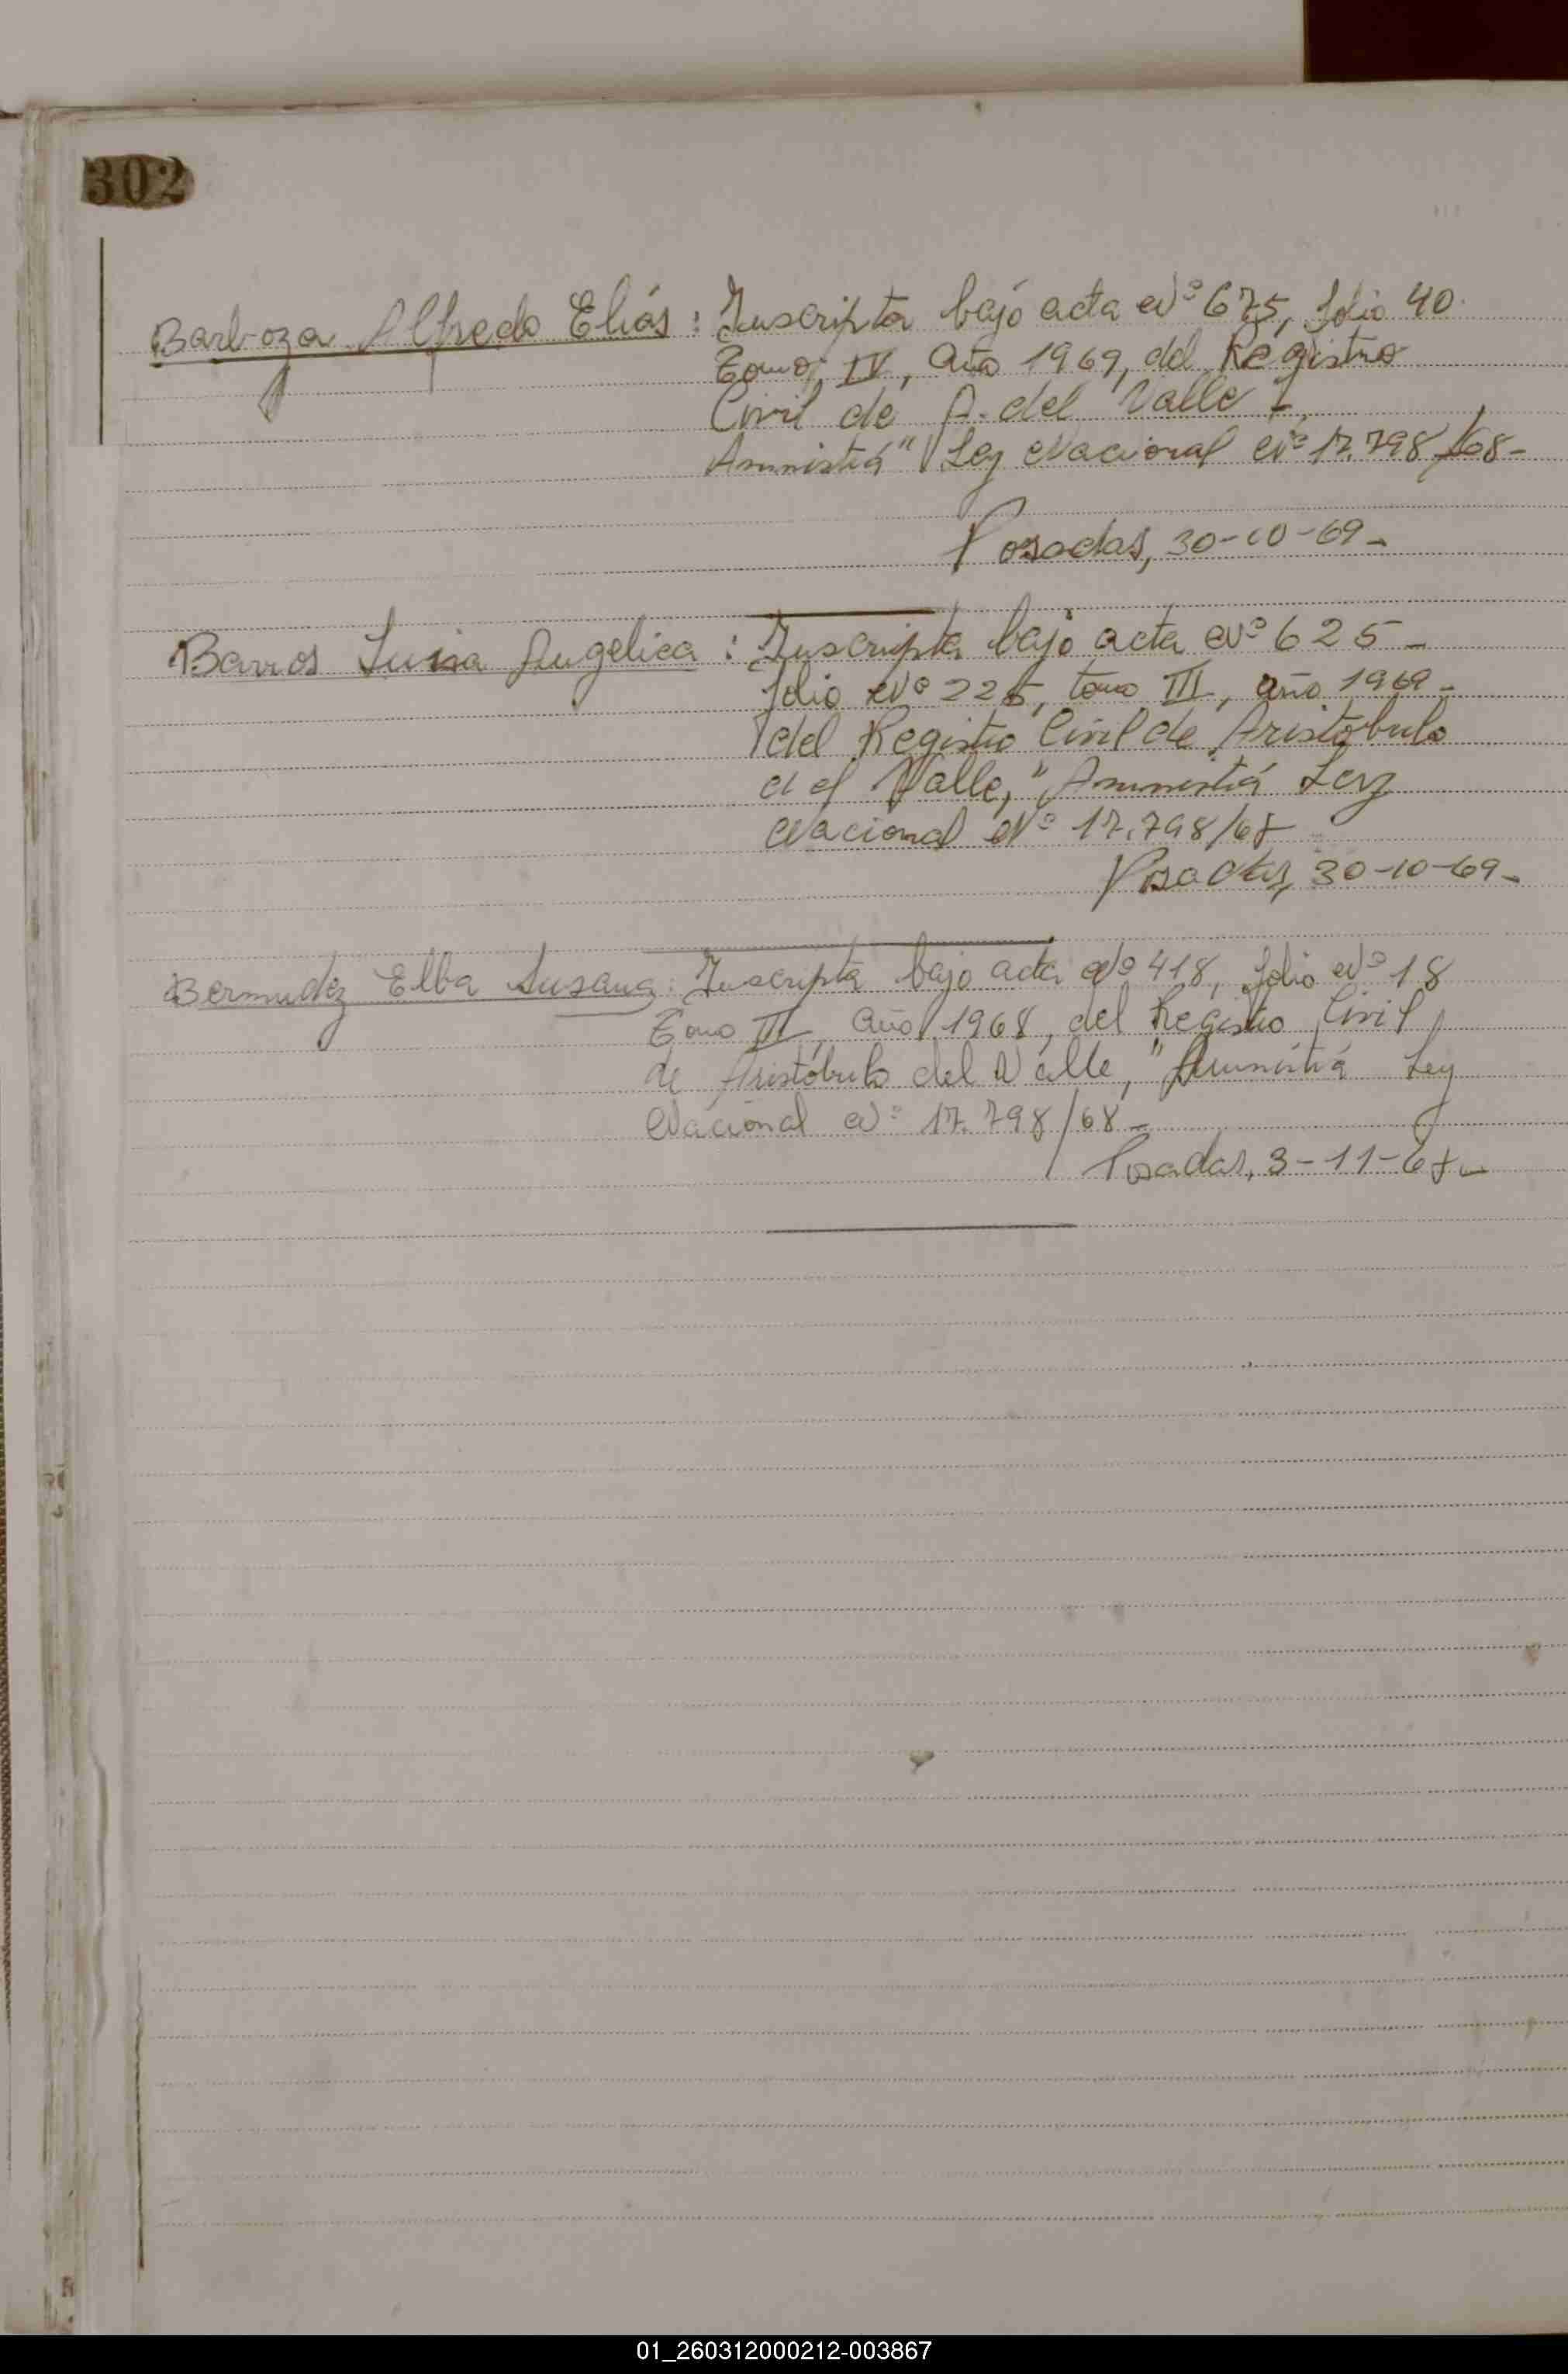 302
Barboza Alfredo Elías : Inscripta bajo acta Nº 675, folio 40
Tomo IV, año 1969, del Registro
Civil de A. del Valle -
Amnistiá" Ley Nacional Nº 17.798/68-
Posadas, 30-10-69-
Barros Luisa Angelica : Inscripta bajo acta Nº 625 -
folio Nº 225, tomo III, año 1969 -
del Registro Civil de Aristobulo
del Valle, "Amnistiá Ley
Nacional Nº 17.798/68
Posadas, 30-10-69-
Bermudez Elba Susana : Inscripta bajo acta Nº 418, folio Nº 18
Tomo III, año 1968, del Registro Civil
de Aristóbulo del Valle, "Amnistiá Ley
Nacional Nº 17.798/68-
Posadas, 3-11-68-
01_260312000212-003867